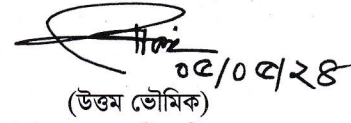 ০৫/০৫/২৪
(উত্তম ভৌমিক)